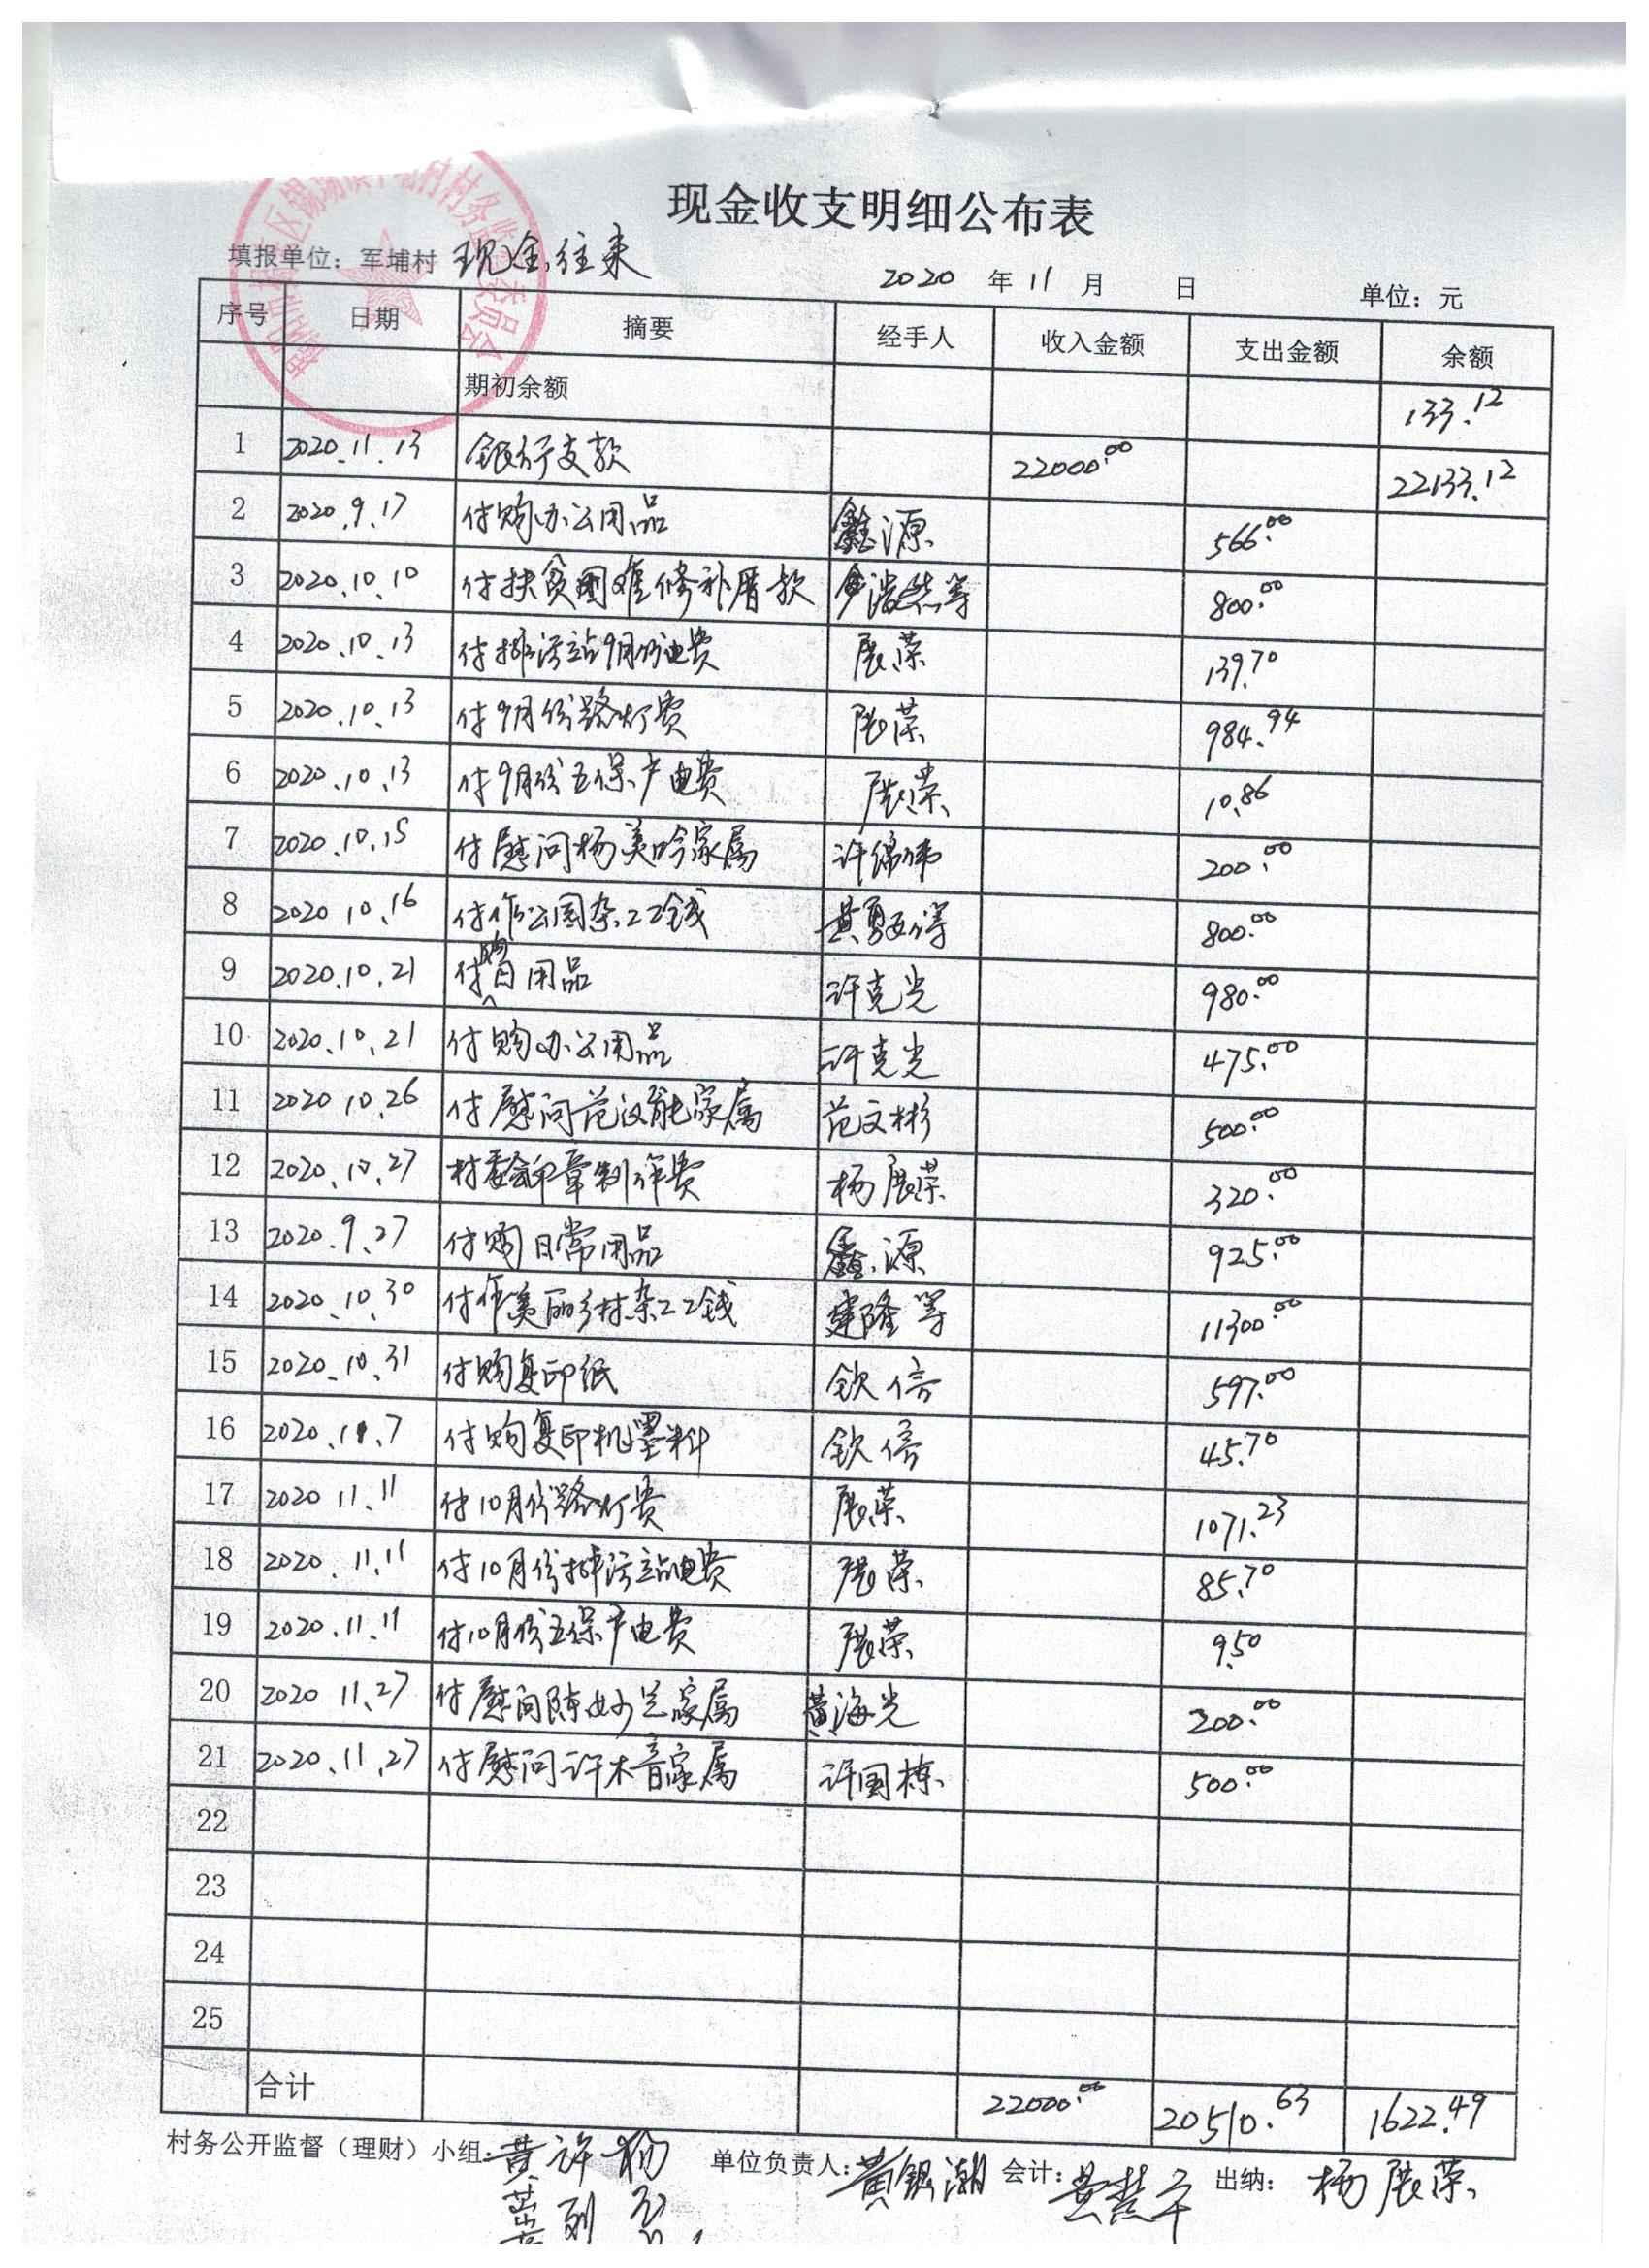 现金收支明细公布表
填报单位：军埔村 现金往来 2020 年 11 月 日 单位：元
序号 日期 摘要 经手人 收入金额 支出金额 余额
期初余额 133.12
1 2020.11.13 银行支款 22000.00 22133.12
2 2020.9.17 付购办公用品 鑫源 566.00
3 2020.10.10 付扶贫困难修补厝款 浩然等 800.00
4 2020.10.13 付排污站9月份电费 展荣 139.70
5 2020.10.13 付9月份路灯费 展荣 984.94
6 2020.10.13 付9月份五保户电费 展荣 10.86
7 2020.10.15 付慰问杨美吟家属 许绵伟 200.00
8 2020.10.16 付作公园杂工工钱 黄勇等 800.00
9 2020.10.21 付购日用品 许克光 980.00
10 2020.10.21 付购办公用品 许克光 475.00
11 2020.10.26 付慰问范汉能家属 范文彬 500.00
12 2020.10.27 村委会印章制作费 杨展荣 320.00
13 2020.9.27 付购日常用品 鑫源 925.00
14 2020.10.30 付作美丽乡村杂工工钱 建隆等 11300.00
15 2020.10.31 付购复印纸 钦信 597.00
16 2020.11.7 付购复印机墨料 钦信 45.70
17 2020.11.11 付10月份路灯费 展荣 1071.23
18 2020.11.11 付10月份排污站电费 展荣 85.70
19 2020.11.11 付10月份五保户电费 展荣 9.50
20 2020.11.27 付慰问陈妙兰家属 黄海光 200.00
21 2020.11.27 付慰问许木音家属 许国栋 500.00
22
23
24
25
合计 22000.00 20510.63 1622.49
村务公开监督（理财）小组： 黄 许 杨 单位负责人：黄银潮 会计： 出纳：杨展荣